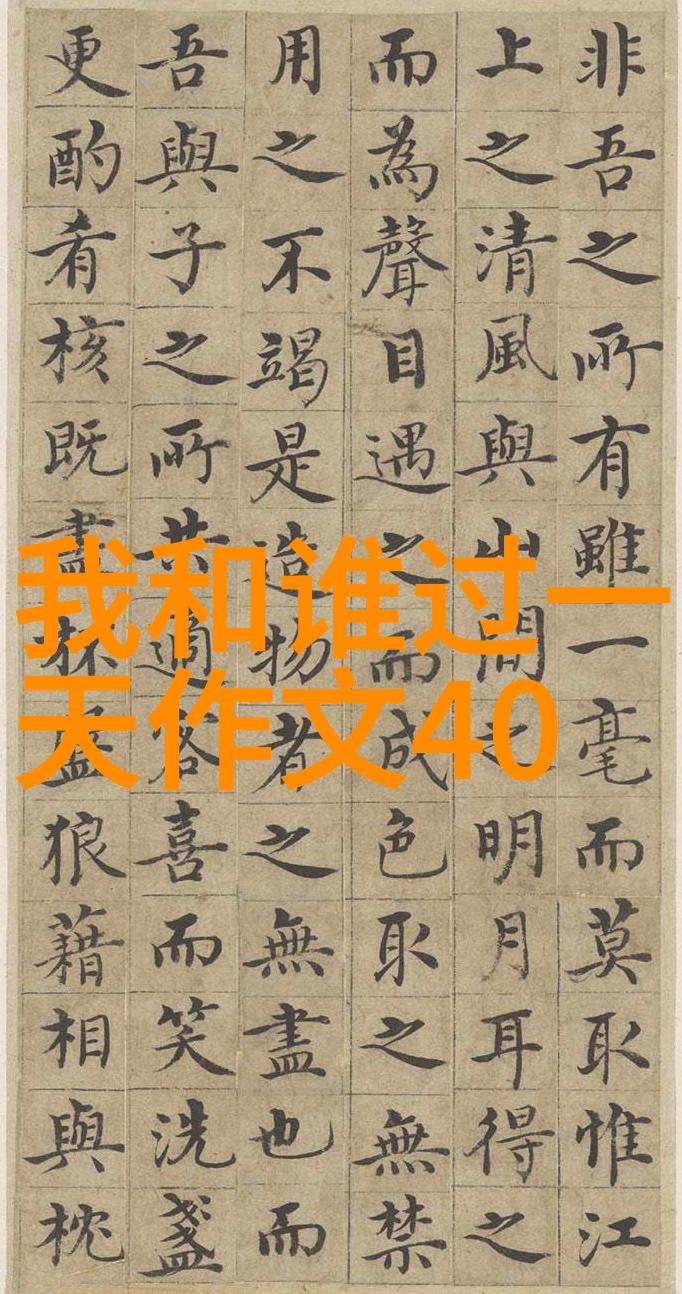 非吾之所有雖一毫而莫取惟江
上之清風與山間之明月耳得之
而為聲目遇之而成色取之無禁
用之不竭是造物者之無盡也而
吾與子之所共適客喜而笑洗盞
更酌肴核既盡杯盤狼藉相與枕
我和谁过一
天作文40